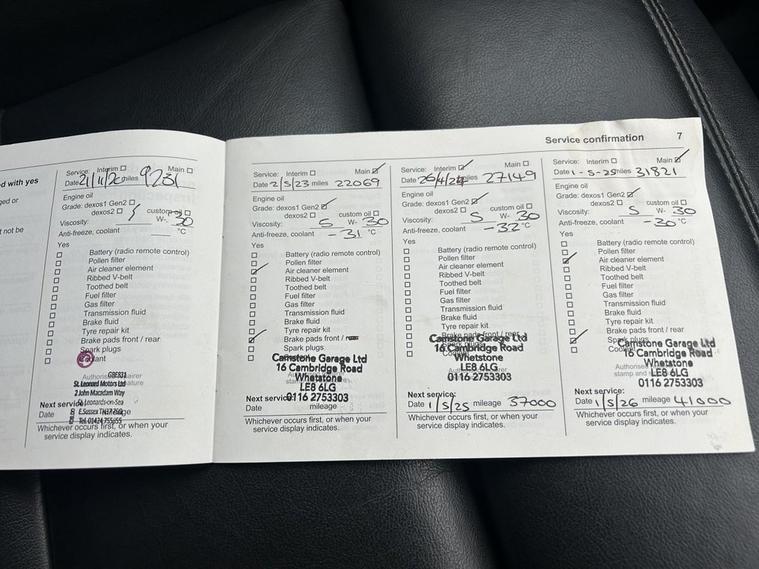 d with yes
ged or
t not be
Service: Interim ☐ Main ☐
Date 21/11/20 miles 9231
Engine oil
Grade: dexos1 Gen2 ☐
dexos2 ☐ custom oil ☐
Viscosity: W- 30
Anti-freeze, coolant °C
Yes
☐ Battery (radio remote control)
☐ Pollen filter
☐ Air cleaner element
☐ Ribbed V-belt
☐ Toothed belt
☐ Fuel filter
☐ Gas filter
☐ Transmission fluid
☐ Brake fluid
☐ Tyre repair kit
☐ Brake pads front / rear
☐ Spark plugs
St. Leonard Motors Ltd
2 John Macadam Way
St. Leonards-on-Sea
E.Sussex
Next service:
Date
Whichever occurs first, or when your
service display indicates.
Service confirmation 7
Service: Interim ☐ Main ☑
Date 2/5/23 miles 22069
Engine oil
Grade: dexos1 Gen2 ☑
dexos2 ☐ custom oil ☐
Viscosity: 5 W- 30
Anti-freeze, coolant -31 °C
Yes
☐ Battery (radio remote control)
☑ Pollen filter
☐ Air cleaner element
☐ Ribbed V-belt
☐ Toothed belt
☐ Fuel filter
☐ Gas filter
☐ Transmission fluid
☐ Brake fluid
☐ Tyre repair kit
☑ Brake pads front /
☐ Spark plugs
Camstone Garage Ltd
16 Cambridge Road
Whetstone
LE8 6LG
0116 2753303
Next service:
Date mileage
Whichever occurs first, or when your
service display indicates.
Service: Interim ☑ Main ☐
Date 26/4/24 miles 27149
Engine oil
Grade: dexos1 Gen2 ☑
dexos2 ☐ custom oil ☐
Viscosity: 5 W- 30
Anti-freeze, coolant -32 °C
Yes
☐ Battery (radio remote control)
☐ Pollen filter
☐ Air cleaner element
☐ Ribbed V-belt
☐ Toothed belt
☐ Fuel filter
☐ Gas filter
☐ Transmission fluid
☐ Brake fluid
☐ Tyre repair kit
☐ Brake pads front / rear
Camstone Garage Ltd
16 Cambridge Road
Whetstone
LE8 6LG
0116 2753303
Next service:
Date 1/5/25 mileage 37000
Whichever occurs first, or when your
service display indicates.
Service: Interim ☐ Main ☑
Date 1-5-25 miles 31821
Engine oil
Grade: dexos1 Gen2 ☑
dexos2 ☐ custom oil ☐
Viscosity: 5 W- 30
Anti-freeze, coolant -30 °C
Yes
☐ Battery (radio remote control)
☑ Pollen filter
☐ Air cleaner element
☐ Ribbed V-belt
☐ Toothed belt
☐ Fuel filter
☐ Gas filter
☐ Transmission fluid
☐ Brake fluid
☐ Tyre repair kit
☐ Brake pads front / rear
☑ Spark plugs
Camstone Garage Ltd
16 Cambridge Road
Whetstone
LE8 6LG
0116 2753303
Next service:
Date 1/5/26 mileage 41000
Whichever occurs first, or when your
service display indicates.